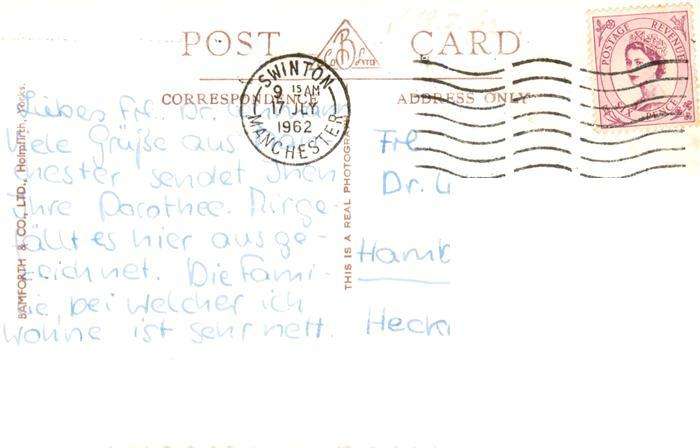 POST CARD
CORRESPONDENCE
ADDRESS ONLY
SWINTON
9 15 AM
17 JLY
1962
MANCHESTER
POSTAGE REVENUE
SIX PENCE
BAMFORTH & CO., LTD., Holmfirth, Yorks.
THIS IS A REAL PHOTOGRA
Liebes Frl. Dr.
Viele Grüße aus
chester sendet Ihnen
Ihre Dorothee. Mir ge-
fällt es hier ausge-
zeichnet. Die Fami-
lie, bei welcher ich
wohne ist sehr nett.
Frl
Dr.
Hamb
Heck